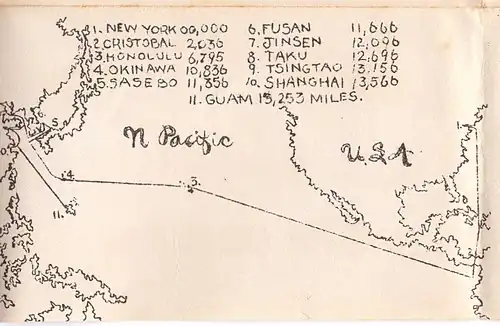 1. NEW YORK 00,000 6. FUSAN 11,666
2. CRISTOBAL 2,036 7. JINSEN 12,096
3. HONOLULU 6,795 8. TAKU 12,696
4. OKINAWA 10,836 9. TSINGTAO 13,156
5. SASEBO 11,356 10. SHANGHAI 13,566
11. GUAM 15,253 MILES.
N Pacific
U.S.A
5
4
3
11.
1